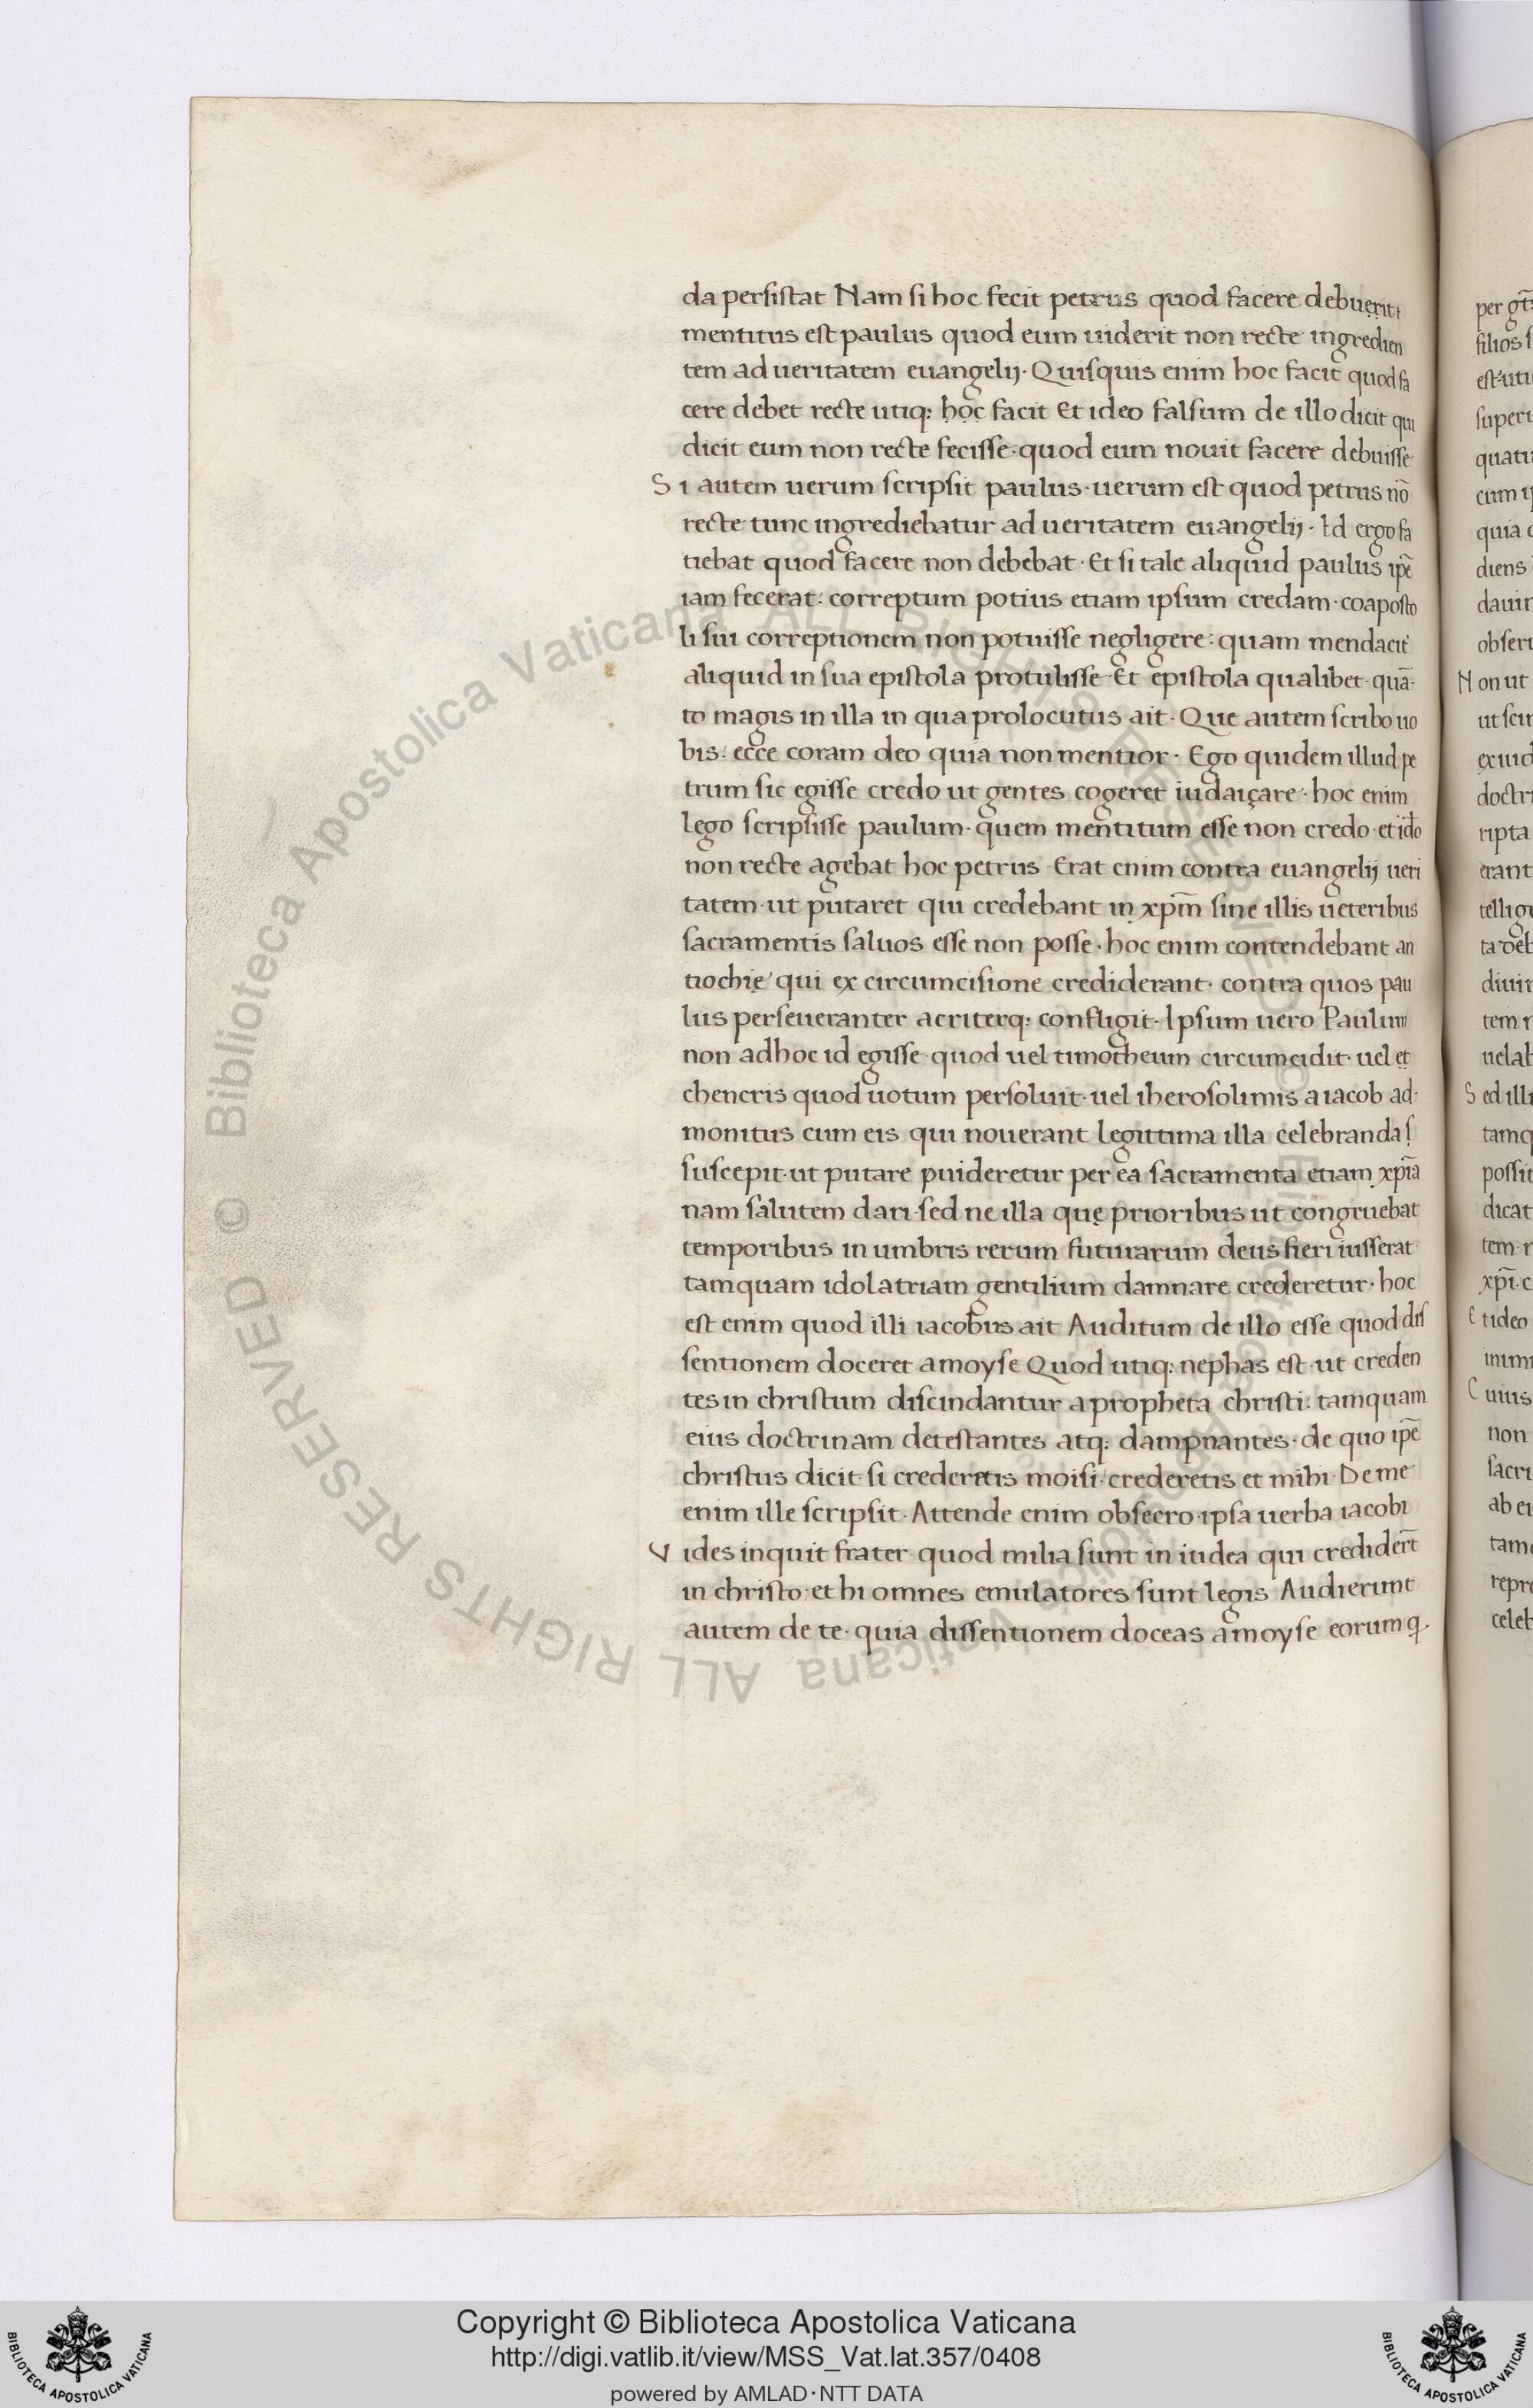 da persistat Nam si hoc fecit petrus quod facere debuerit
mentitus est paulus quod eum uiderit non recte ingredien
tem ad ueritatem euangelij · Quisquis enim hoc facit quod fa
cere debet recte utiq: hoc facit Et ideo falsum de illo dicit qui
dicit eum non recte fecisse · quod eum nouit facere debuisse
Si autem uerum scripsit paulus · uerum est quod petrus nō
recte tunc ingrediebatur ad ueritatem euangelij · Id ergo fa
tiebat quod facere non debebat · Et si tale aliquid paulus ip̄e
iam fecerat: correptum potius etiam ipsum credam · coaposto
li sui correptionem non potuisse negligere: quam mendacit̾
aliquid in sua epistola protulisse · Et epistola qualibet · quā
to magis in illa in qua prolocutus ait · Que autem scribo uo
bis: ecce coram deo quia non mentior · Ego quidem illud pe
trum sic egisse credo ut gentes cogeret iudaiçare · hoc enim
lego scripsisse paulum · quem mentitum esse non credo · et iđo
non recte agebat hoc petrus · Erat enim contra euangelij ueri
tatem · ut putaret qui credebant in xp̄m sine illis ueteribus
sacramentis saluos esse non posse · hoc enim contendebant an
tiochię qui ex circumcisione crediderant · contra quos pau
lus perseueranter acriterq: confligit · Ipsum uero Paulum
non adhoc id egisse quod uel timotheum circumcidit · uel et
chencris quod uotum persoluit · uel iherosolimis a iacob ad
monitus cum eis qui nouerant legittima illa celebranda s
suscepit · ut putare puideretur per ea sacramenta etiam xp̄ia
nam salutem dari · sed ne illa quę prioribus ut congruebat
temporibus in umbris rerum futurarum deus fieri iusserat
tamquam idolatriam gentilium damnare crederetur · hoc
est enim quod illi iacobus ait Auditum de illo esse quod dis
sentionem doceret a moyse Quod utiq: nephas est · ut creden
tes in christum discindantur a propheta christi: tamquam
eius doctrinam detestantes atq: dampnantes · de quo ip̄e
christus dicit si crederetis moisi · crederetis et mihi · De me
enim ille scripsit · Attende enim obsecro · ipsa uerba iacobi
Vides inquit frater quod milia sunt in iudea qui credider̄t
in christo · et hi omnes emulatores sunt legis Audierunt
autem de te · quia dissentionem doceas a moyse eorum q
per
filios
est · uti
superi
quatu
cum
quia
diens
dauir
obser
Non ut
ut scir
ex iud
doctr
ripta
erant
tellig
ta deb
diuir
tem
uelab
Sed illi
tamq
possit
dicat
tem
xp̄i · c
Et ideo
inim
Cuius
non
sacri
ab ei
tam
repr
celeb
© Biblioteca Apostolica Vaticana ALL RIGHTS RESERVED © Biblioteca Apostolica Vaticana ALL RIGHTS RESERVED
Copyright © Biblioteca Apostolica Vaticana
http://digi.vatlib.it/view/MSS_Vat.lat.357/0408
powered by AMLAD · NTT DATA
BIBLIOTECA APOSTOLICA VATICANA
BIBLIOTECA APOSTOLICA VATICANA